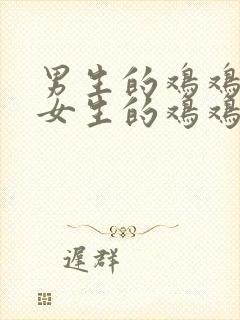 男生的鸡鸡
女生的鸡鸡
遲群